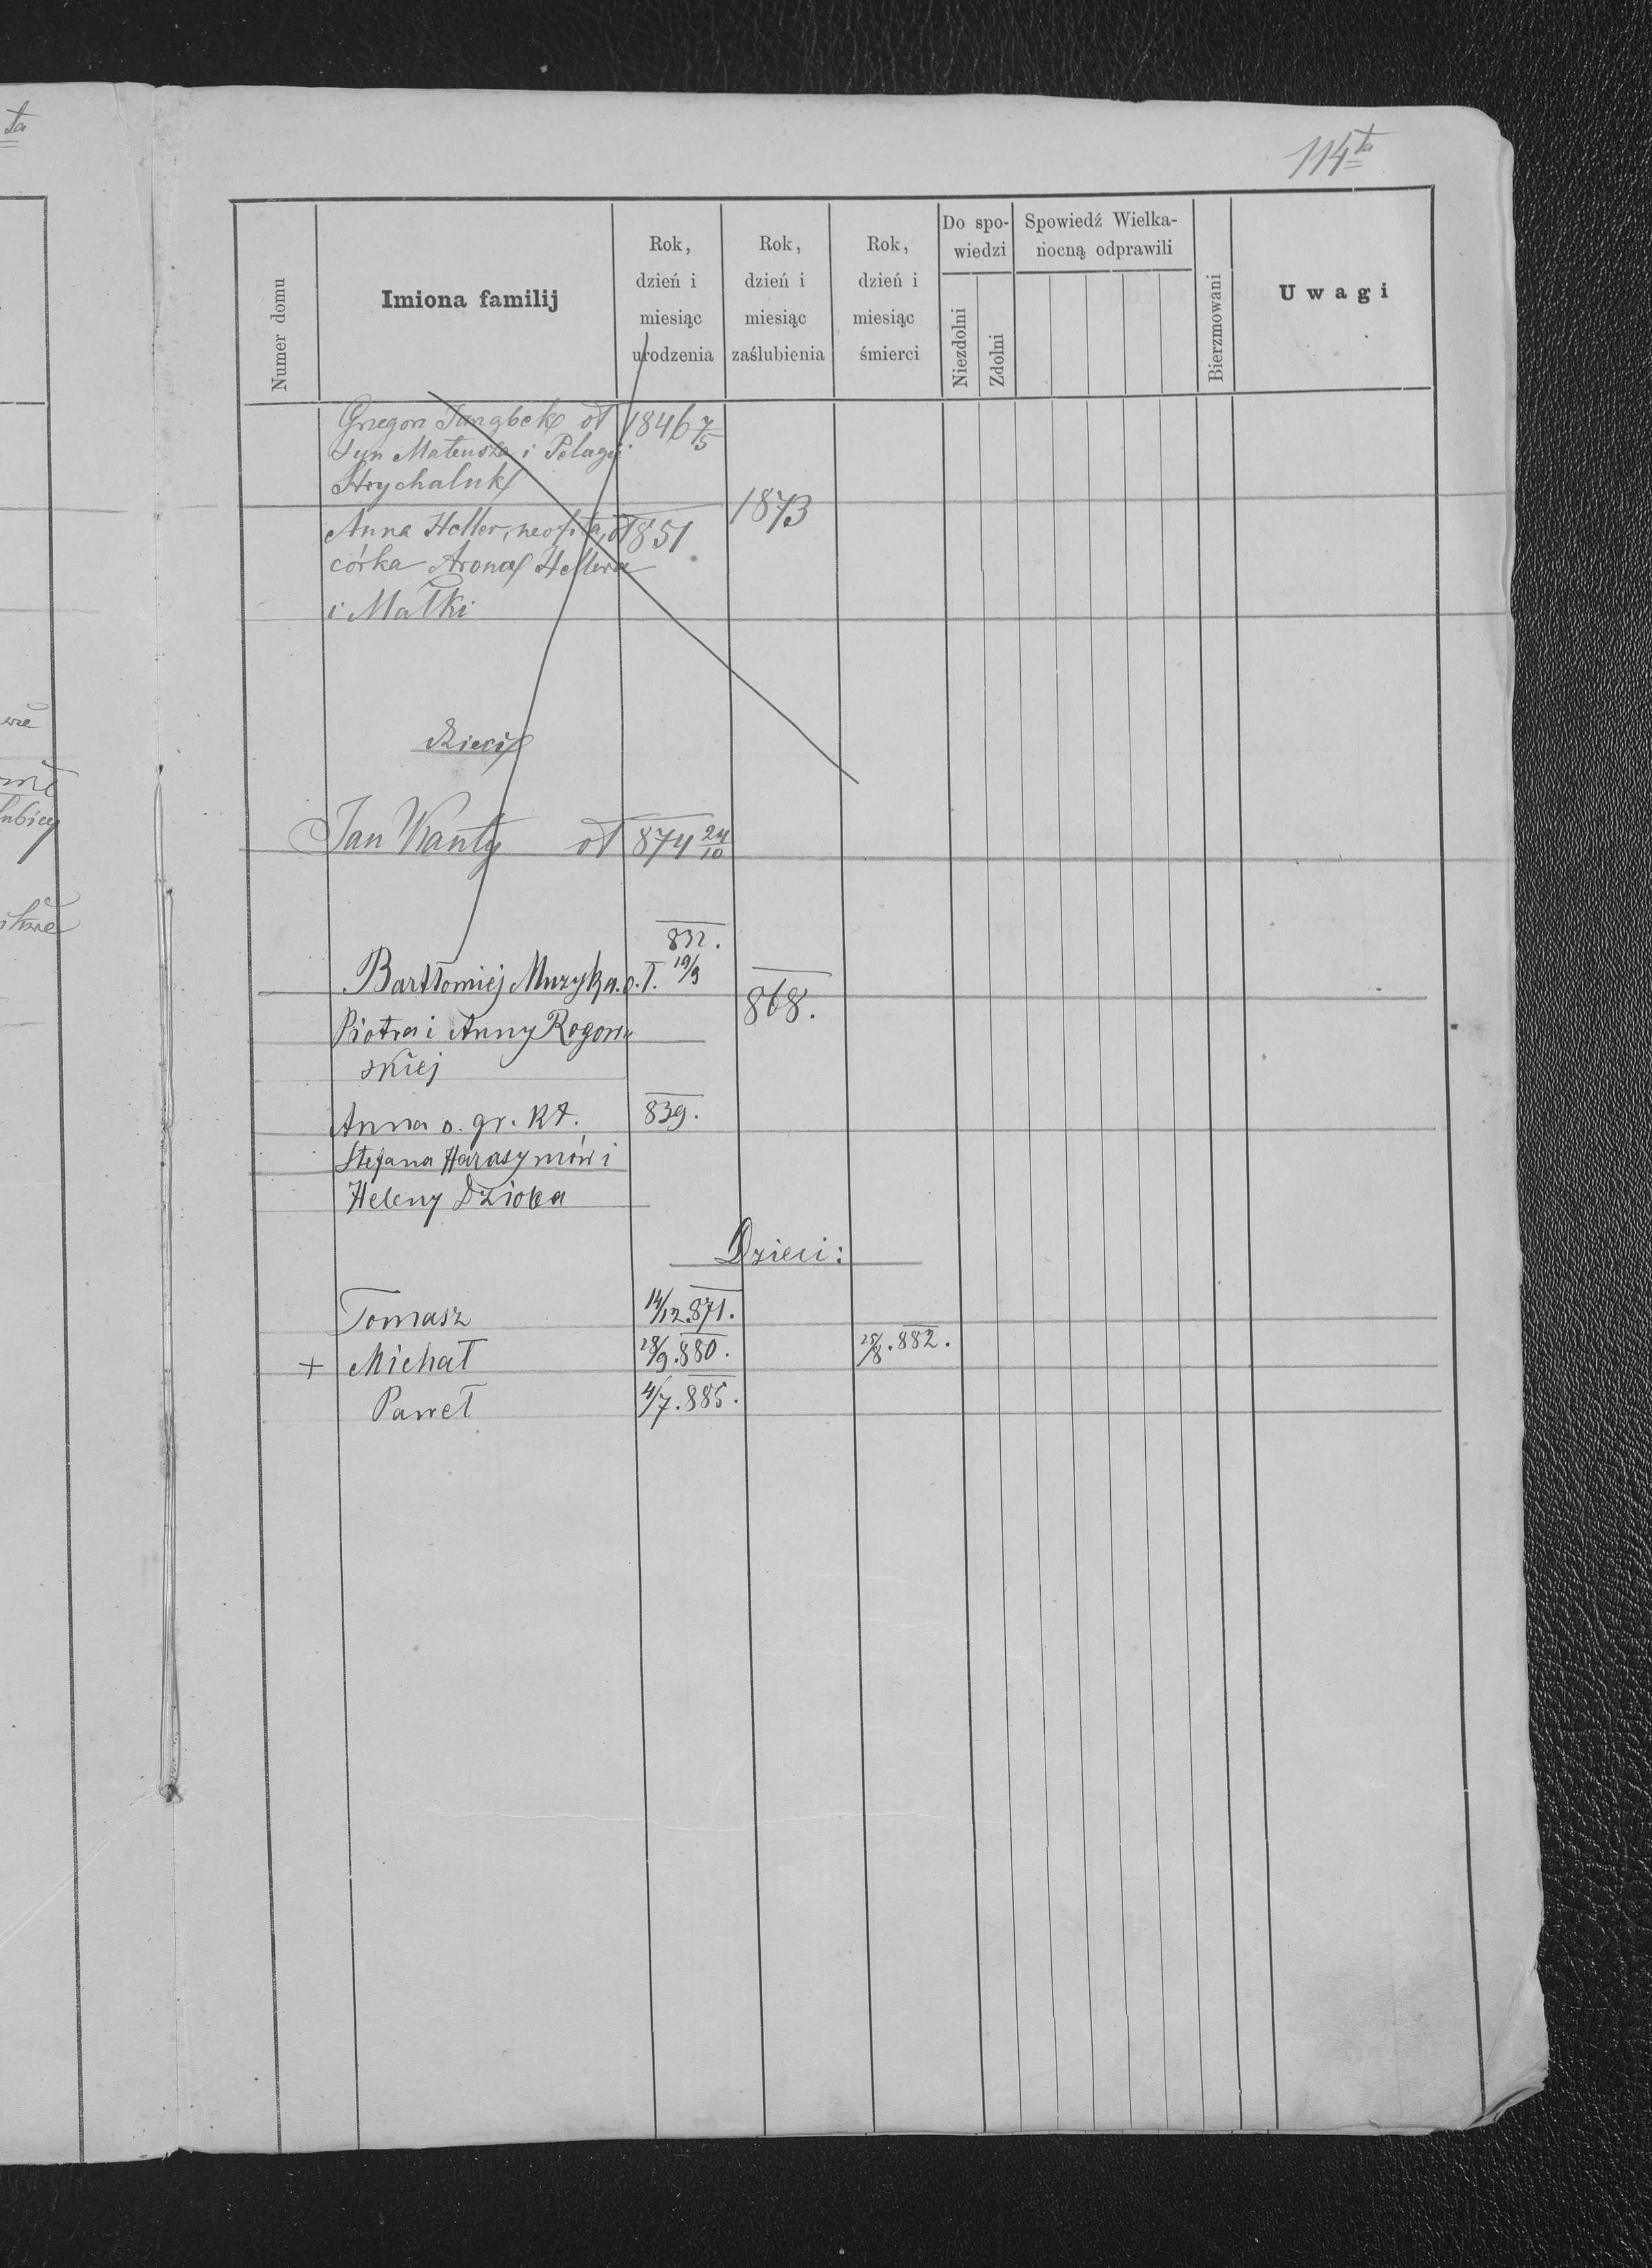 114ta
Numer domu
Imiona familij
Rok,
dzień i
miesiąc
urodzenia
Rok,
dzień i
miesiąc
zaślubienia
Rok,
dzień i
miesiąc
śmierci
Do spo-
wiedzi
Niezdolni
Zdolni
Spowiedź Wielka-
nocną odprawili
Bierzmowani
Uwagi
Gregorz ot 1846 7/5
Syn Mateusza i Pelagii
Hrychaluk
1873
Anna Heller, neofita, ot 851
córka Arona Hellera
i Małki
Dzieci
Jan Kanty ot 874 24/10
832.
Bartłomiej Muzyka. o.ł. 19/9
868.
Piotra i Anny Rogow
skiej
Anna o. gr. Kt. 839.
Stefana Harasymów i
Heleny Dzioba
Dzieci:
Tomasz 14/12.871.
+ Michał 28/9.880. 25/8.882.
Paweł 4/7.885.